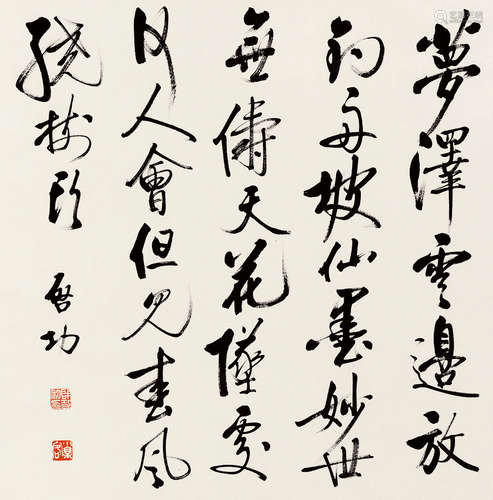 夢澤雲邊放
釣舟坡仙墨妙世
無儔天花墜處
何人會但見春風
繞樹頭
啟功